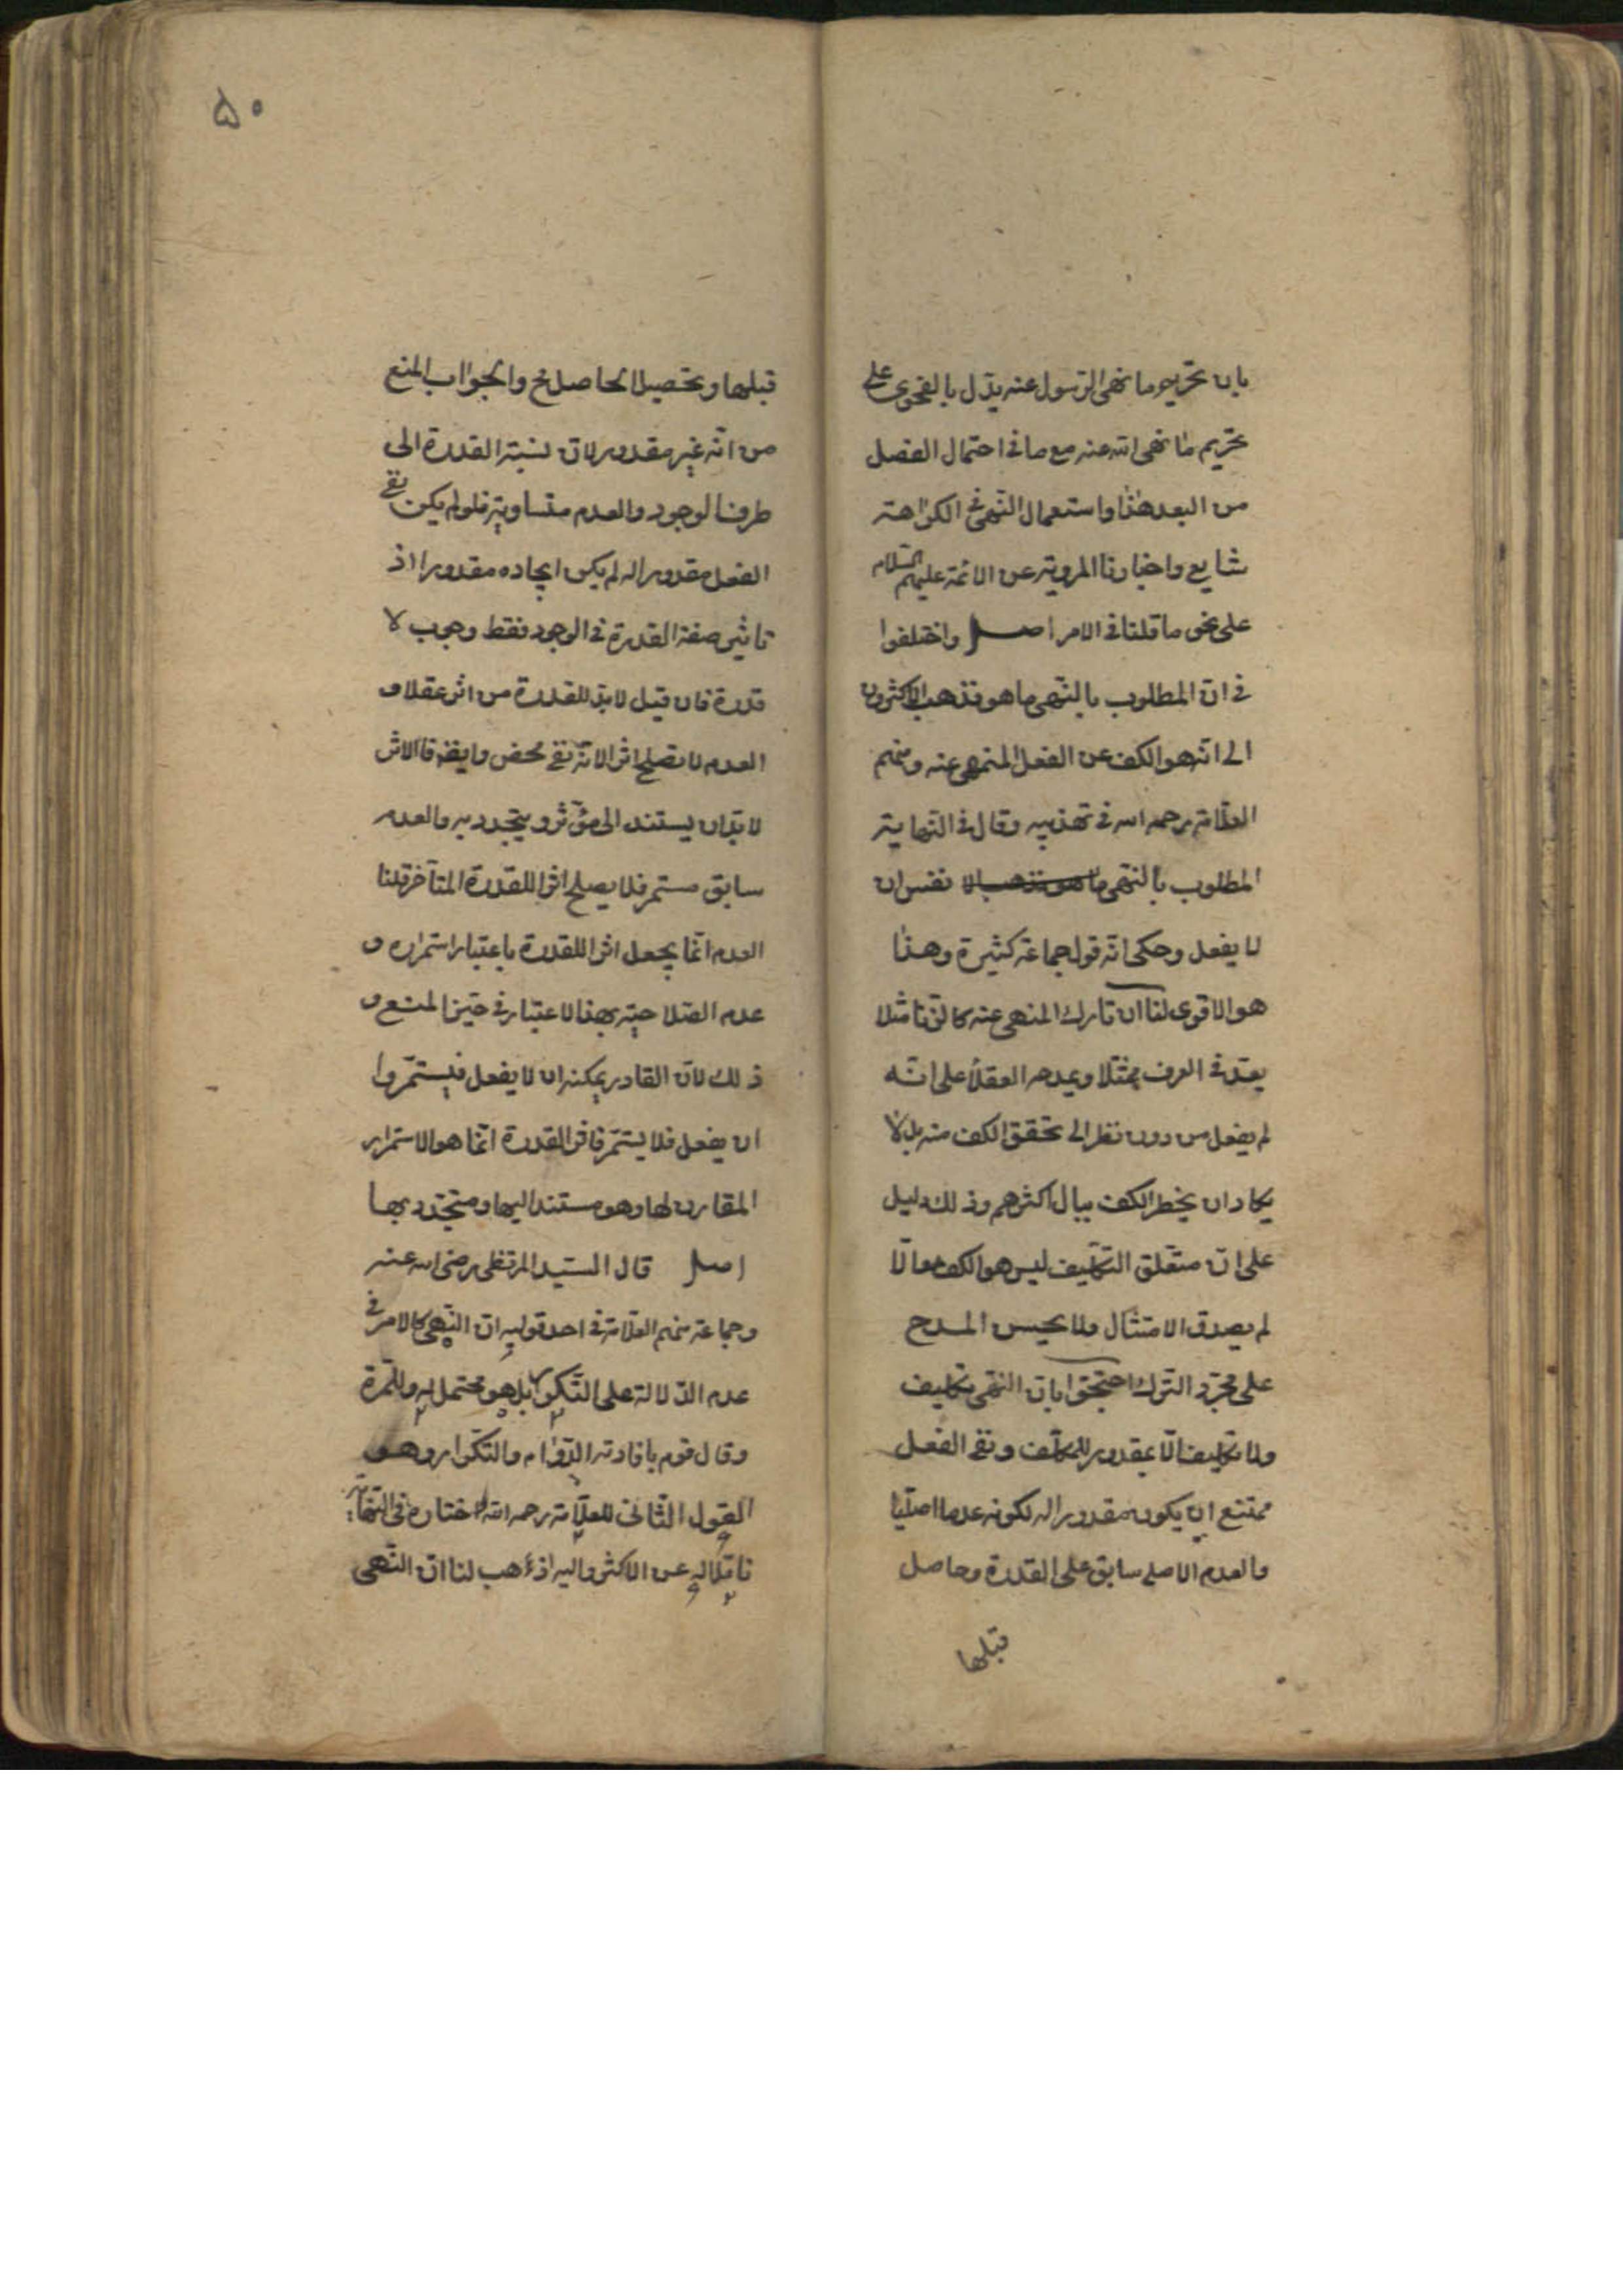 بان تحريم ما نهى الرسول عنه يدل بالفحوى على
تحريم ما نهى الله عنه مع ما فى احتمال الفصل
من البعد هذا واستعمال النهى فى الكراهة
شايع واخبارنا المروية عن الائمة عليهم السلام
على نحو ما قلنا فى الامر اصل واختلفوا
فى ان المطلوب بالنهى ما هو فذهب الاكثرون
الى انه هو الكف عن الفعل المنهى عنه ومنهم
العلامة رحمه الله فى تهذيبه وقال فى النهاية
المطلوب بالنهى نفس ان
لا يفعل وحكى انه قول جماعة كثيرة وهذا
هو الاقوى لنا ان تارك المنهى عنه كالزنا مثلا
يعد فى العرف ممتثلا ويمدحه العقلاء على انه
لم يفعل من دون نظر الى تحقق الكف منه بل لا
يكاد ان يخطر الكف ببال اكثرهم وذلك دليل
على ان متعلق التكليف ليس هو الكف والا
لم يصدق الامتثال ولا يحسن المدح
على مجرد الترك احتجوا بان النهى تكليف
ولا تكليف الا بمقدور للمكلف ونفى الفعل
ممتنع ان يكون مقدورا له لكونه عدما اصليا
والعدم الاصلى سابق على القدرة وحاصل
قبلها
۵۰
قبلها وتحصيل الحاصل مح والجواب المنع
من انه غير مقدور لان نسبة القدرة الى
طرفى الوجود والعدم متساوية فلو لم يكن نفى
الفعل مقدورا له لم يكن ايجاده مقدورا اذ
تاثير صفة القدرة فى الوجود فقط وجوب لا
قدرة فان قيل لابد للقدرة من اثر عقلا و
العدم لا تصلح اثرا لانه نفى محض وايضا فالاثر
لابد ان يستند الى مؤثر ويتجدد به والعدم
سابق مستمر فلا يصلح اثرا للقدرة المتاخر قلنا
العدم انما يجعل اثرا للقدرة باعتبار استمراره و
عدم الصلاحية بهذا الاعتبار فى حيز المنع و
ذلك لان القادر يمكنه ان لا يفعل فيستمر وا
ان يفعل فلا يستمر فاثر القدرة انما هو الاستمرار
المقارن لها وهو مستند اليها ومتجدد بها
اصل قال السيد المرتضى رضى الله عنه
وجماعة منهم العلامة فى احد قوليه ان النهى كالامر فى
عدم الدلالة على التكرار بل هو محتمل له وللمرة
وقال قوم بافادته الدوام والتكرار وهو
القول الثانى للعلامة رحمه الله اختاره فى النهاية
ناقلا له عن الاكثر واليه اذهب لنا ان النهى